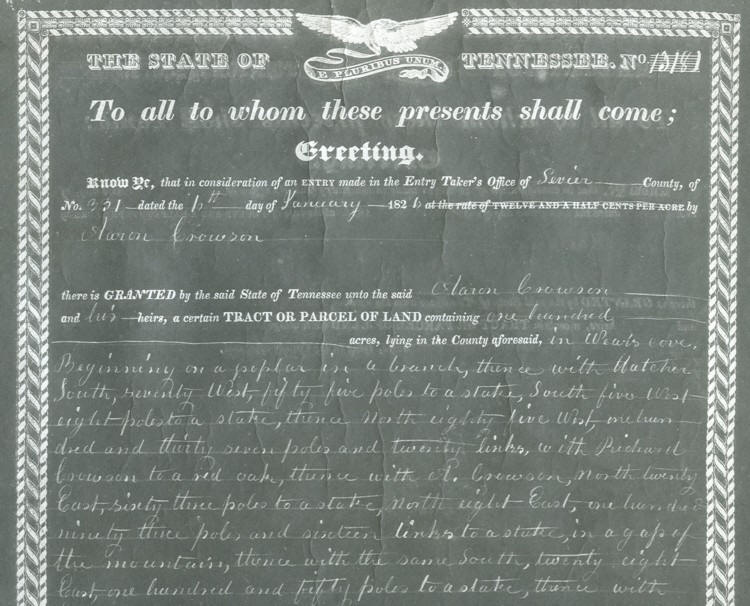 E PLURIBUS UNUM
THE STATE OF TENNESSEE. No.
To all to whom these presents shall come;
Greeting.
Know Ye, that in consideration of an ENTRY made in the Entry Taker's Office of Sevier County, of
No. 331 dated the day of January 1826 at the rate of TWELVE AND A HALF CENTS PER ACRE by
Aaron Crowson
there is GRANTED by the said State of Tennessee unto the said Aaron Crowson
and his heirs, a certain TRACT OR PARCEL OF LAND containing one hundred
acres, lying in the County aforesaid, in Wear's cove,
Beginning on a poplar in a branch, thence with Hatcher
South, seventy West, fifty five poles to a stake, South five West
eight poles to a stake, thence North eighty five West one hun
dred and thirty seven poles and twenty links, with Richard
Crowson to a red oak, thence with R. Crowson, North twenty
East, sixty three poles to a stake, North eight East, one hundred
ninety three poles and sixteen links to a stake, in a gap of
the mountain, thence with the same South, twenty eight
East, one hundred and fifty poles to a stake, thence with